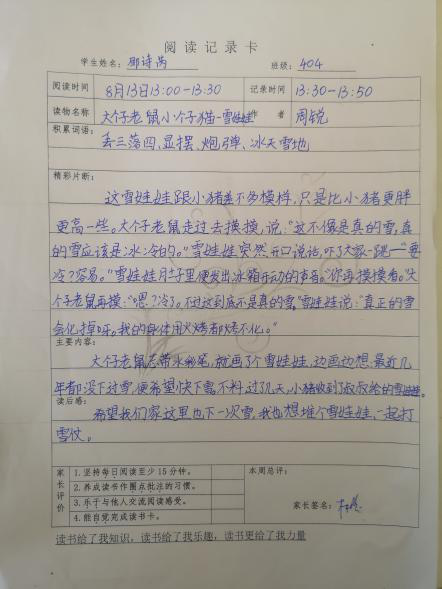 阅读记录卡
学生姓名: 邢诗尚 班级: 404
阅读时间 8月13日13:00-13:30 记录时间 13:30-13:50
读物名称 大个子老鼠小个子猫-雪娃娃 作者 周锐
积累词语:
丢三落四、显摆、炮弹、冰天雪地
精彩片断:
这雪娃娃跟小猪差不多模样,只是比小猪更胖
更高一些。大个子老鼠走过去摸摸,说:“这不像是真的雪,真
的雪应该是冰冷的。”雪娃娃突然开口说话,吓了大家一跳——“要
冷?容易。”雪娃娃肚子里便发出冰箱开动的声音。“你再摸摸看。”大
个子老鼠再摸:“嗯?冷了。不过这到底不是真的雪。”雪娃娃说:“真正的雪
会化掉呀。我的身体用火烤都烤不化。”
主要内容:
大个子老鼠忘带水彩笔,就画了个雪娃娃,边画边想:最近几
年都没下过雪,便希望快下雪。不料,过了几天,小猪收到了叔叔给的雪娃娃。
读后感:
希望我们家这里也下一次雪,我也想堆个雪娃娃、一起打
雪仗。
家长评价
1.坚持每日阅读至少15分钟。
2.养成读书作圈点批注的习惯。
3.乐于与他人交流阅读感受。
4.能自觉完成读书卡。
本周总评:
家长签名:
读书给了我知识,读书给了我乐趣,读书更给了我力量